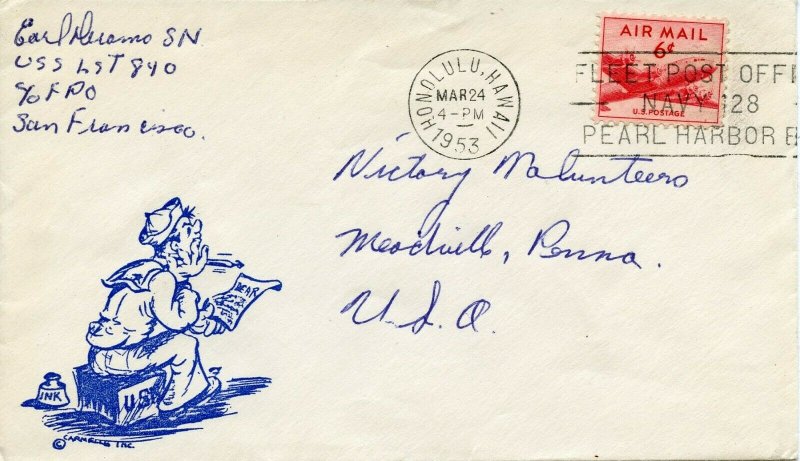 Earl Meramo SN
USS LST 840
c/o FPO
San Francisco.
HONOLULU, HAWAII
MAR 24
4-PM
1953
AIR MAIL
6¢
U.S. POSTAGE
FLEET POST OFFI
NAVY 128
PEARL HARBOR
Victory Volunteers
Meadville, Penna.
U.S.A.
DEAR
INK
USN
© CARMELLE INC